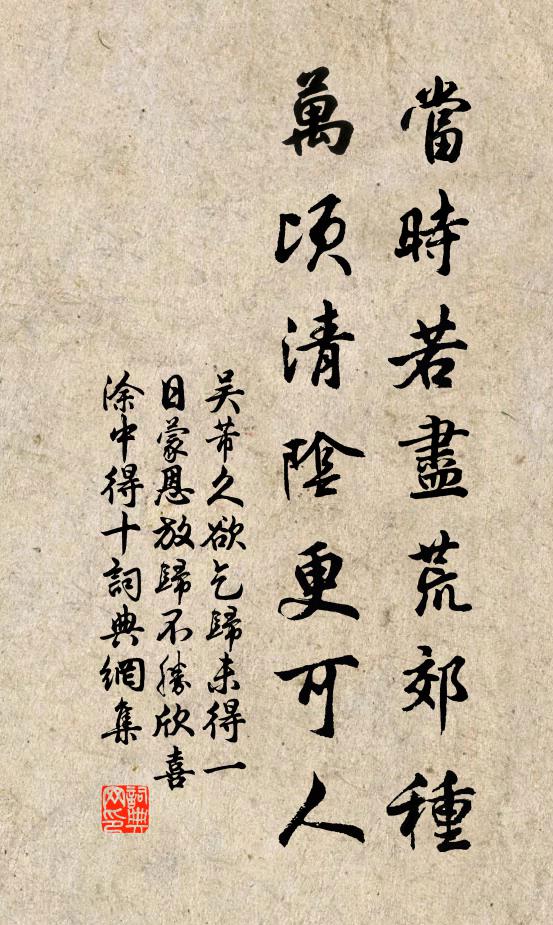 當時若盡荒郊種
萬頃清陰更可人
吴芾久欲乞歸未得一
日蒙恩放歸不勝欣喜
涂中得十詞典網集
詞典
网印